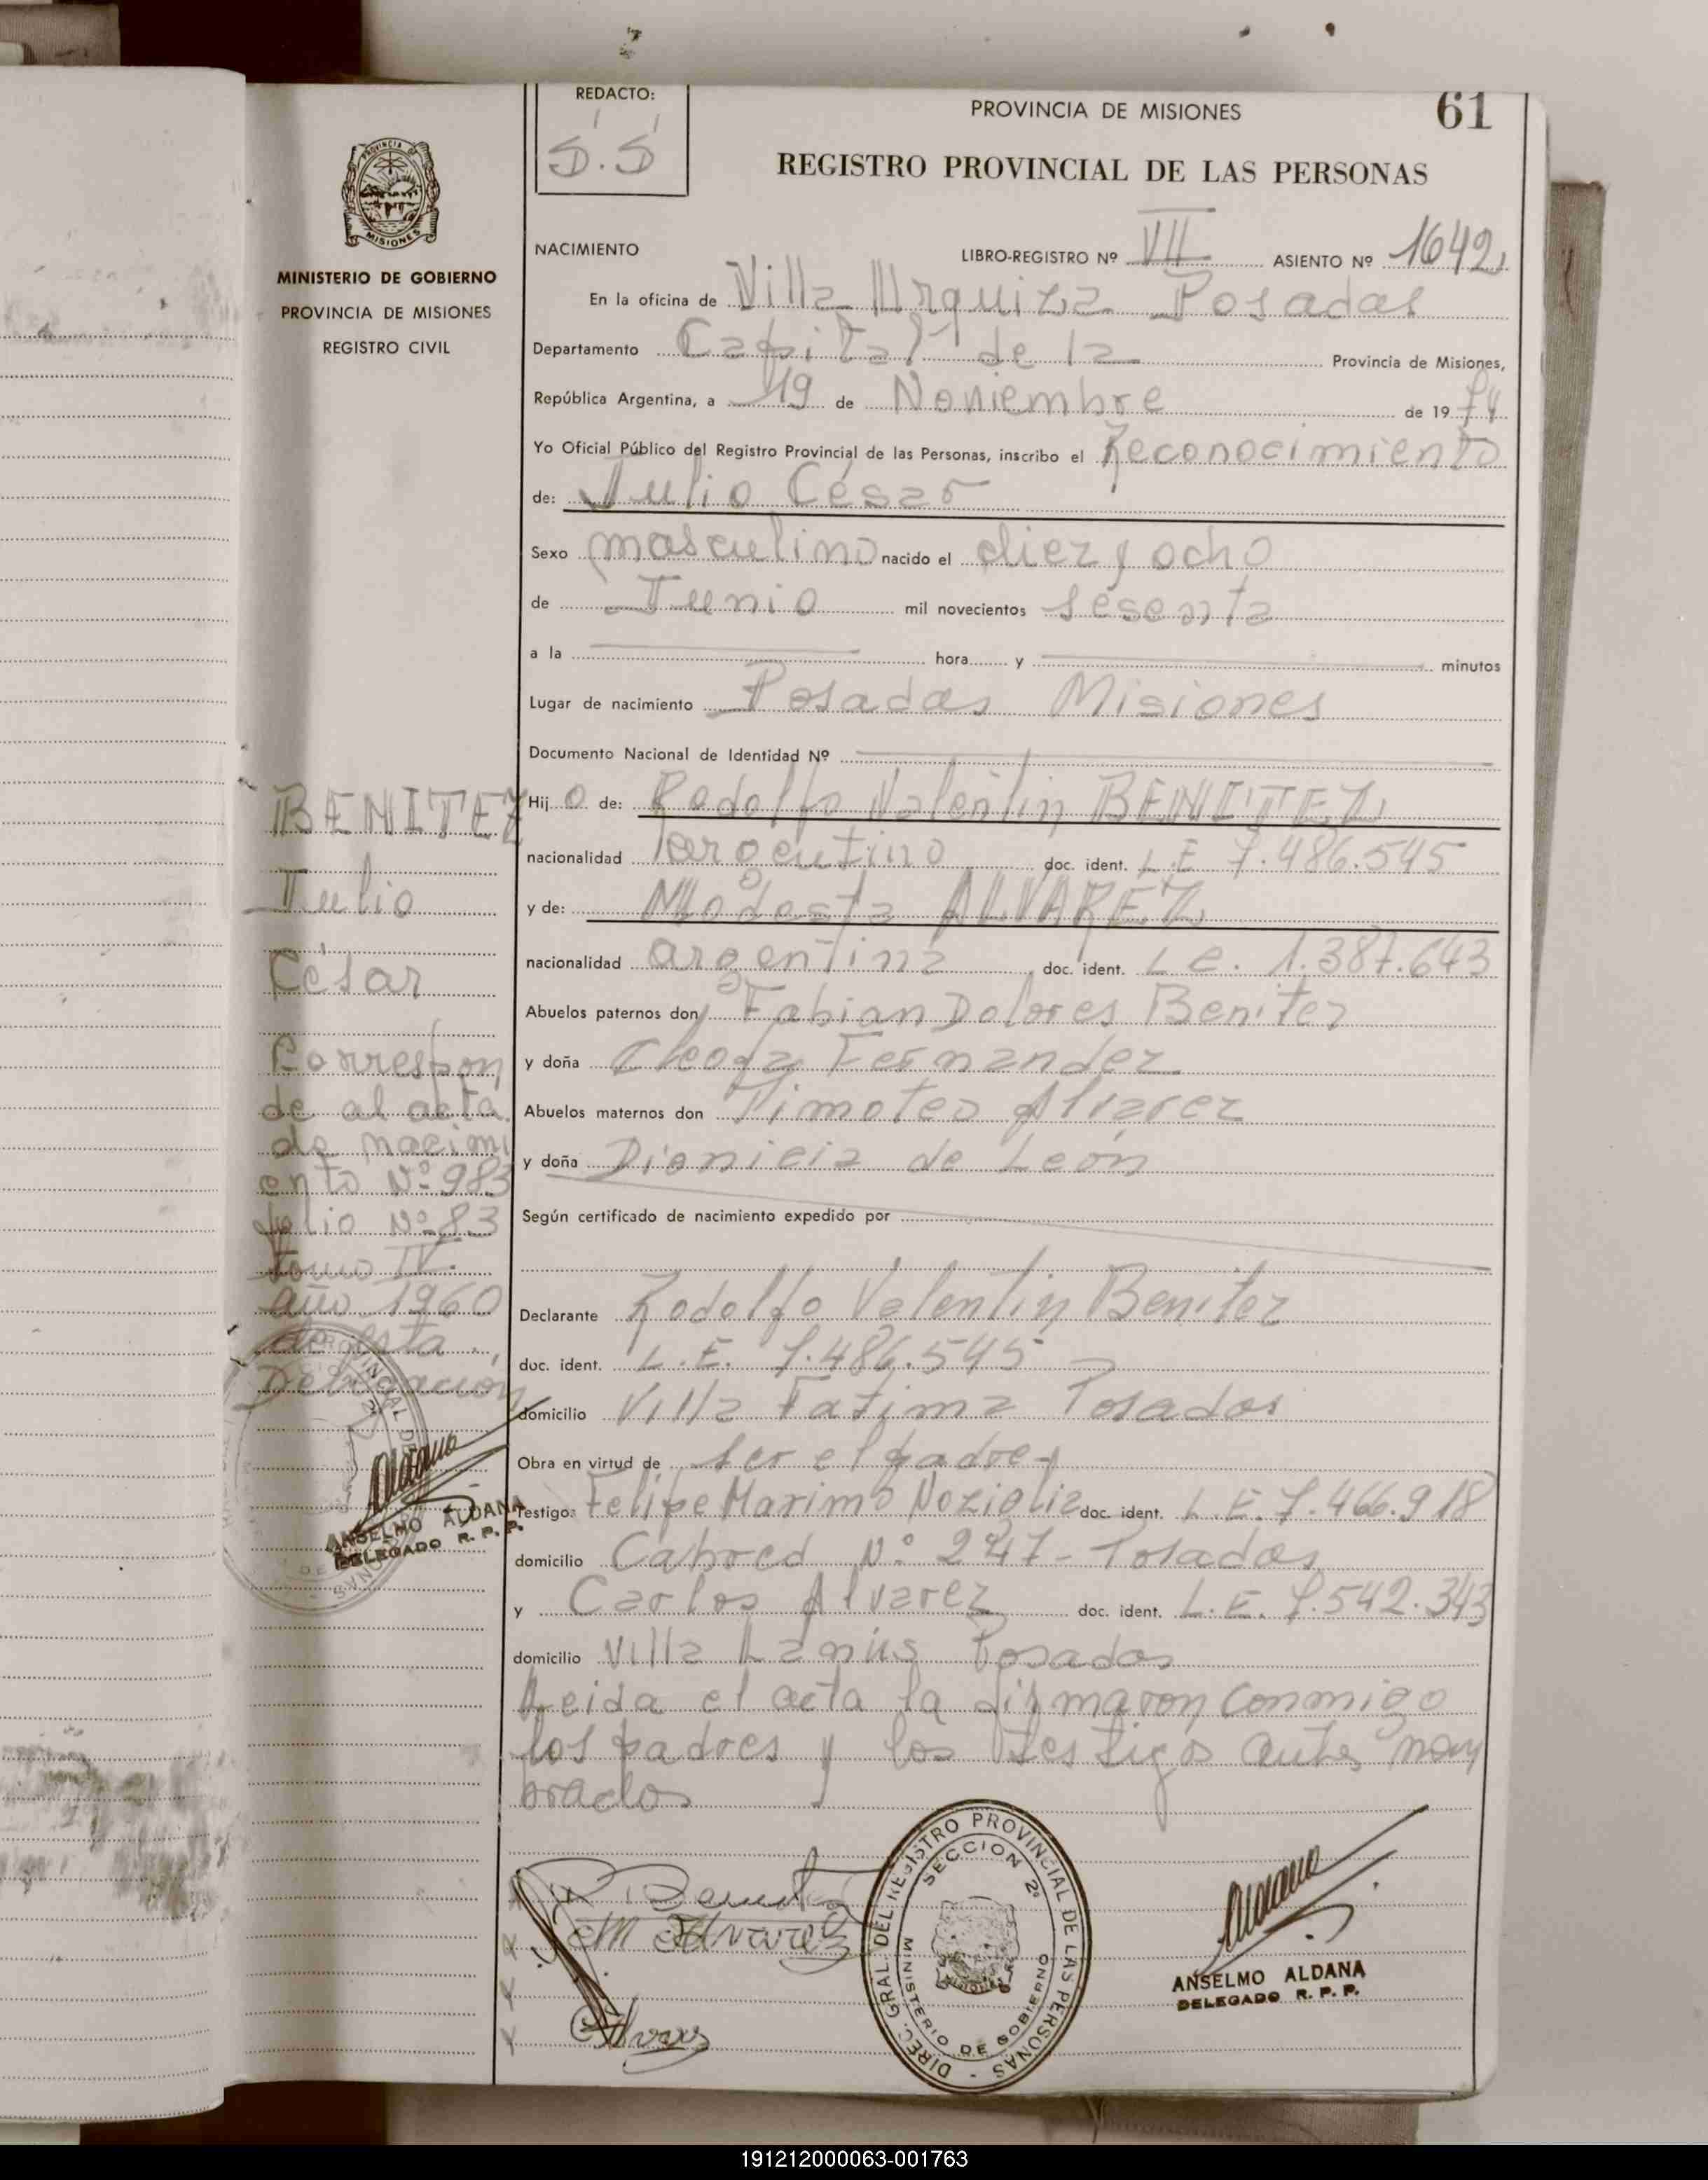 REDACTO:
S.S
PROVINCIA DE MISIONES
61
REGISTRO PROVINCIAL DE LAS PERSONAS
PROVINCIA DE
MISIONES
MINISTERIO DE GOBIERNO
PROVINCIA DE MISIONES
REGISTRO CIVIL
NACIMIENTO LIBRO-REGISTRO Nº VII ASIENTO Nº 1642
En la oficina de Villa Urquiza Posadas
Departamento Capital de la Provincia de Misiones,
República Argentina, a 19 de Noviembre de 1974
Yo Oficial Público del Registro Provincial de las Personas, inscribo el Reconocimiento
de: Julio César
Sexo masculino nacido el diez y ocho
de Junio mil novecientos sesenta
a la hora y minutos
Lugar de nacimiento Posadas Misiones
Documento Nacional de Identidad Nº
Hijo de: Rodolfo Valentin BENITEZ
nacionalidad argentino doc. ident. L.E 7.486.545
y de: Modesta ALVAREZ
nacionalidad argentina doc. ident. L e. 1.387.643
Abuelos paternos don Fabian Dolores Benitez
y doña Fernandez
Abuelos maternos don Timoteo Alvarez
y doña Dionicia de León
Según certificado de nacimiento expedido por
Declarante Rodolfo Valentin Benitez
doc. ident. L.E. 7.486.545
domicilio Villa Fatima Posadas
Obra en virtud de ser el padre
Testigo: Felipe Maximo doc. ident. L.E. 7.466.918
domicilio Cabred Nº 247 - Posadas
y Carlos Alvarez doc. ident. L.E. 7.542.343
domicilio Villa Lanús Posadas
Leida el acta la firmaron conmigo
los padres y los testigos ante nom
brados
BENITEZ
Julio
César
Correspon
de al acta
de nacimi
ento Nº 983
folio Nº 83
tomo IV.
año 1960
de esta
Delegación
Aldana
ANSELMO ALDANA
DELEGADO R. P. P.
R Benitez
M Alvarez
C Alvarez
DIREC. GRAL. DEL REGISTRO PROVINCIAL DE LAS PERSONAS
SECCION 2ª
MINISTERIO DE GOBIERNO
Aldana
ANSELMO ALDANA
DELEGADO R. P. P.
191212000063-001763